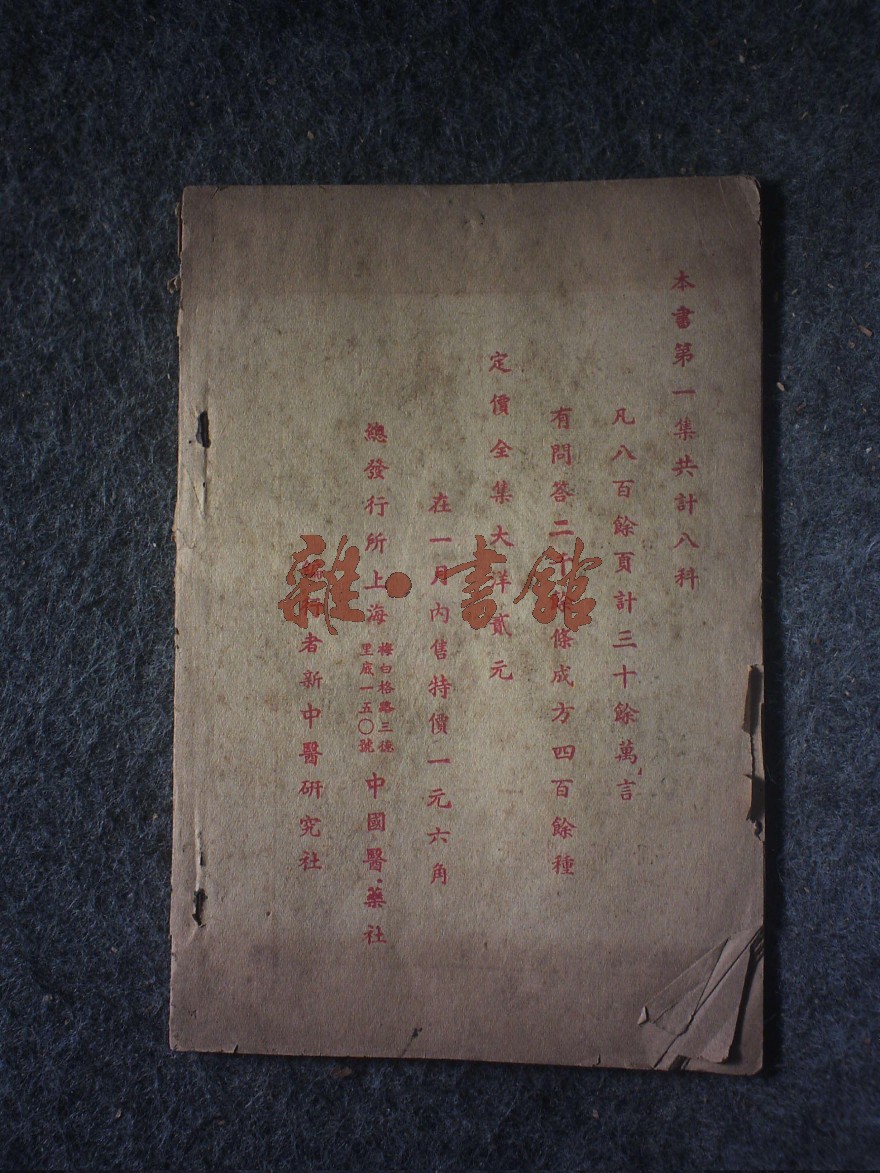 本書第一集共計八科
凡八百餘頁計三十餘萬言
有問答二千餘條成方四百餘種
定價全集大洋貳元
在一月內售特價一元六角
總發行所上海梅白格路三德里底一五〇號中國醫藥社
編行者新中醫研究社
雜·書館